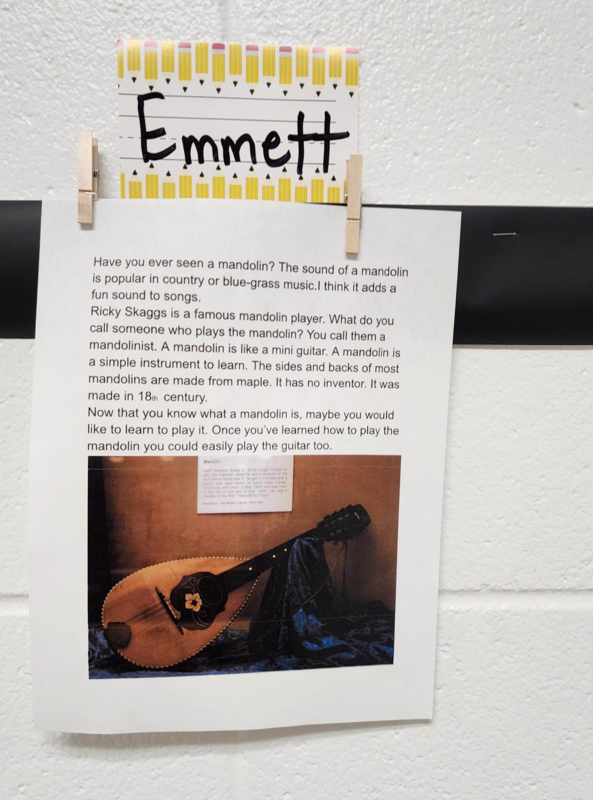 Emmett
Have you ever seen a mandolin? The sound of a mandolin
is popular in country or blue-grass music.I think it adds a
fun sound to songs.
Ricky Skaggs is a famous mandolin player. What do you
call someone who plays the mandolin? You call them a
mandolinist. A mandolin is like a mini guitar. A mandolin is
a simple instrument to learn. The sides and backs of most
mandolins are made from maple. It has no inventor. It was
made in 18th century.
Now that you know what a mandolin is, maybe you would
like to learn to play it. Once you've learned how to play the
mandolin you could easily play the guitar too.
Mandolin